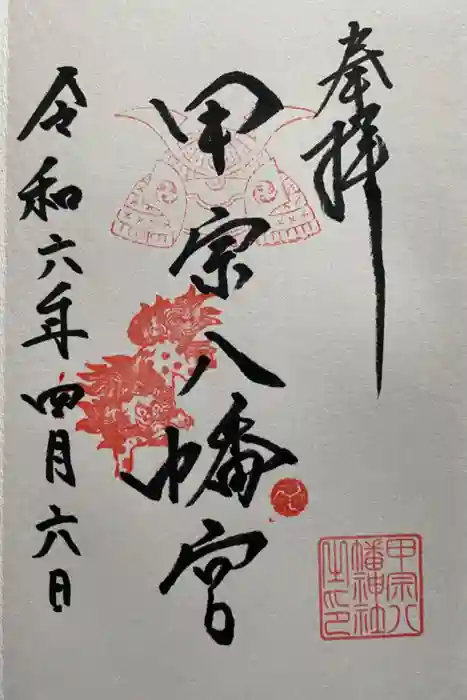 奉拝
甲宗八幡宮
令和六年四月六日
甲宗八
幡神社
之印